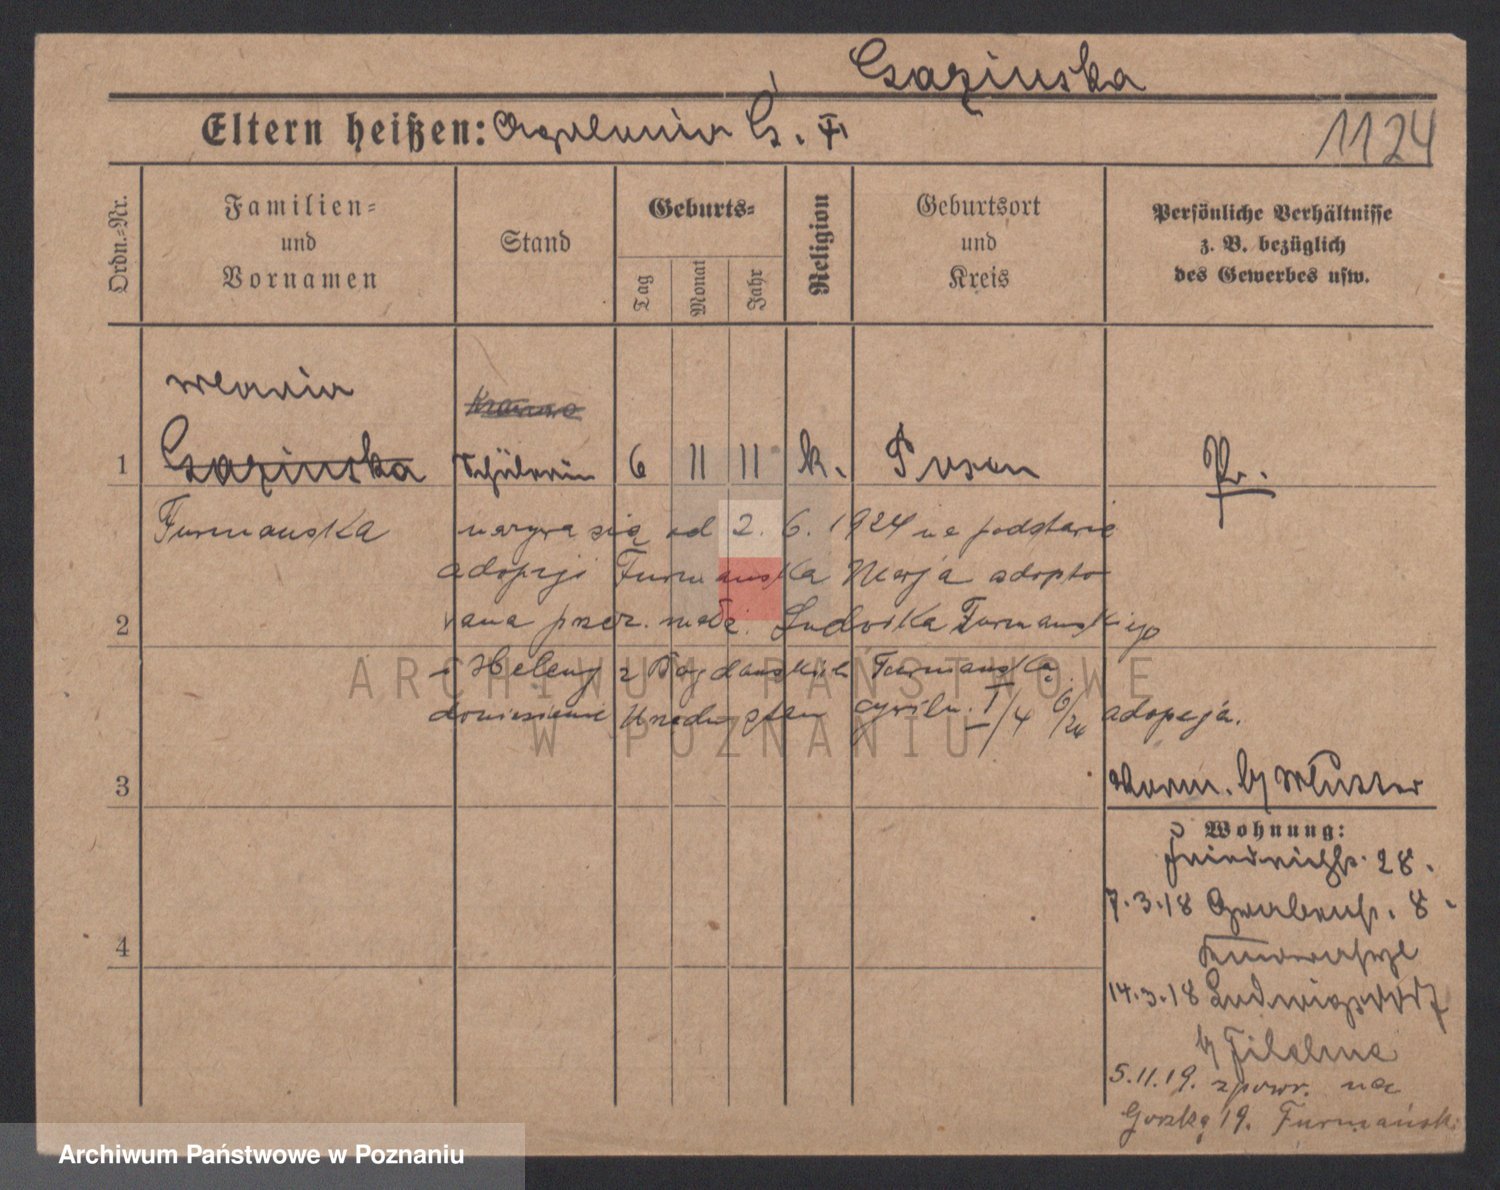 Czazinska
Eltern heißen: Apolonia Cz. †
1124
Ordn.-Nr.
Familien-
und
Vornamen
Stand
Geburts-
Tag
Monat
Jahr
Religion
Geburtsort
und
Kreis
Persönliche Verhältnisse
z. B. bezüglich
des Gewerbes usw.
Maria
1 Czazinska Schülerin 6 11 11 k. Posen Pr.
Furmańska nazywa się od 2. 6. 1924 na podstawie
adopcji Furmańska Marja adopto
2 wana przez małż. Ludwika Furmańskiego
i Heleny z Bogdańskich Furmańską
doniesienie Urzędu stan cywiln. I/4 6/24 adopcja.
3 Vorm. by Mutter
Wohnung:
Friedrichstr. 28.
7.3.18 Grabenstr. 8
4
14.3.18 Ludwigsdorf
by Filehne
5.11.19. zpowr. na
Górską 19. Furmański
ARCHIWUM PAŃSTWOWE
W POZNANIU
Archiwum Państwowe w Poznaniu